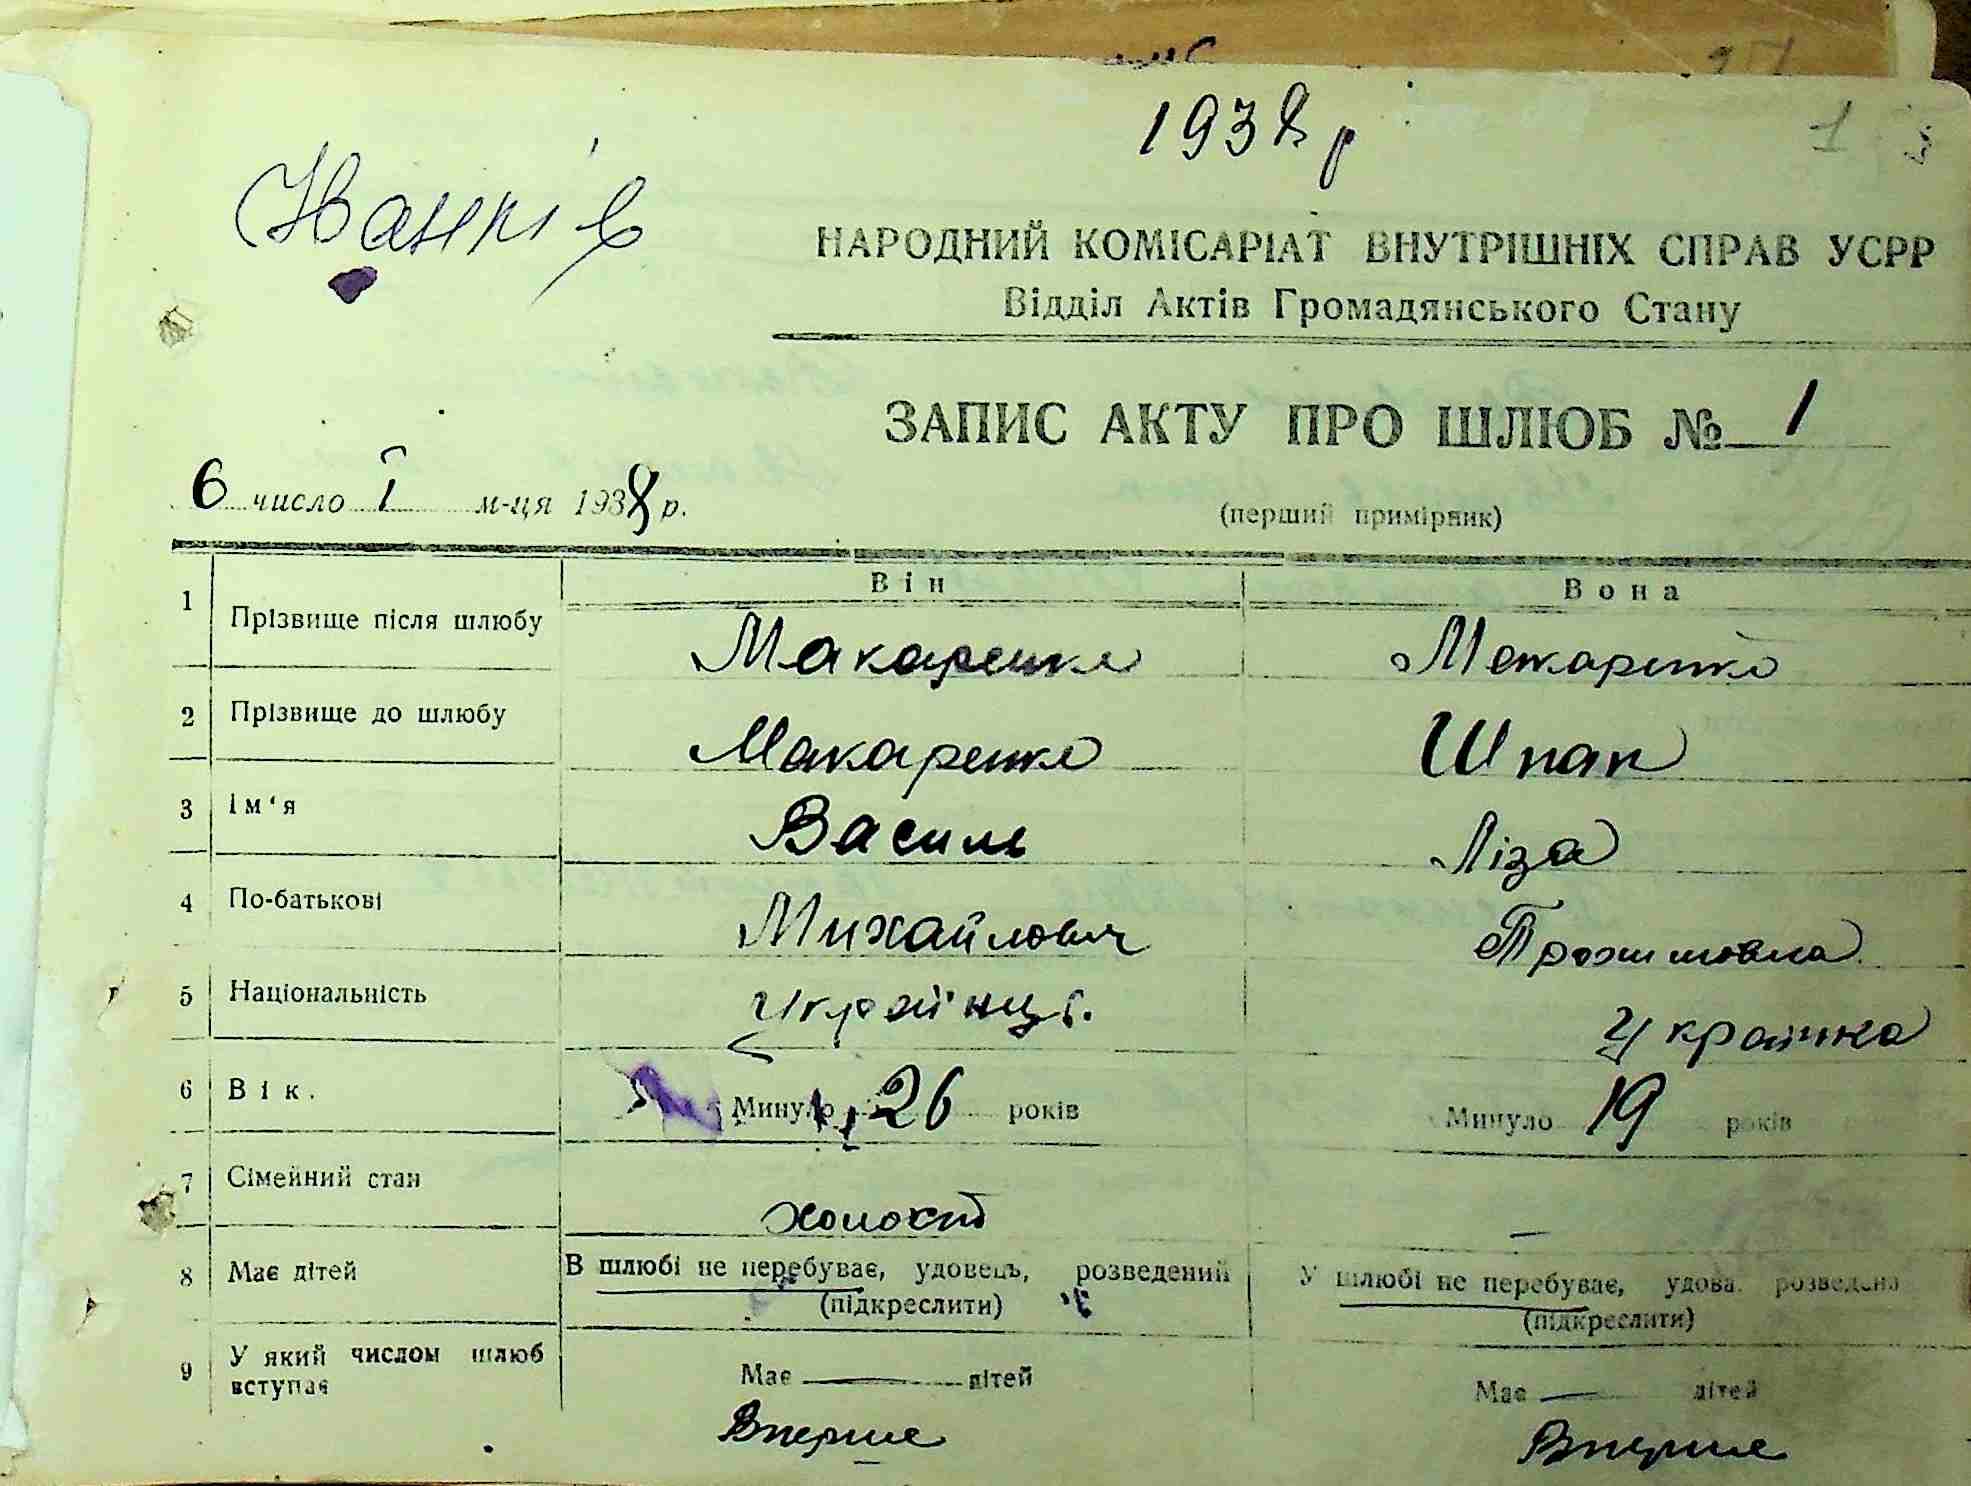 1938 р
1
Іванків
НАРОДНИЙ КОМІСАРІАТ ВНУТРІШНІХ СПРАВ УСРР
Відділ Актів Громадянського Стану
ЗАПИС АКТУ ПРО ШЛЮБ № 1
6 число І м-ця 1938 р.
(перший примірник)
Він Вона
1 Прізвище після шлюбу Макаренко Макаренко
2 Прізвище до шлюбу Макаренко Шпак
3 Ім'я Василь Ліза
4 По-батькові Михайлович Трохимовна
5 Національність Українць. Українка
6 Вік. Минуло 26 років Минуло 19 років
7 Сімейний стан холостий —
8 Має дітей В шлюбі не перебуває, удовець, розведений У шлюбі не перебуває, удова, розведена
(підкреслити) (підкреслити)
9 У який числом шлюб вступає Має — дітей Має — дітей
Вперше Вперше